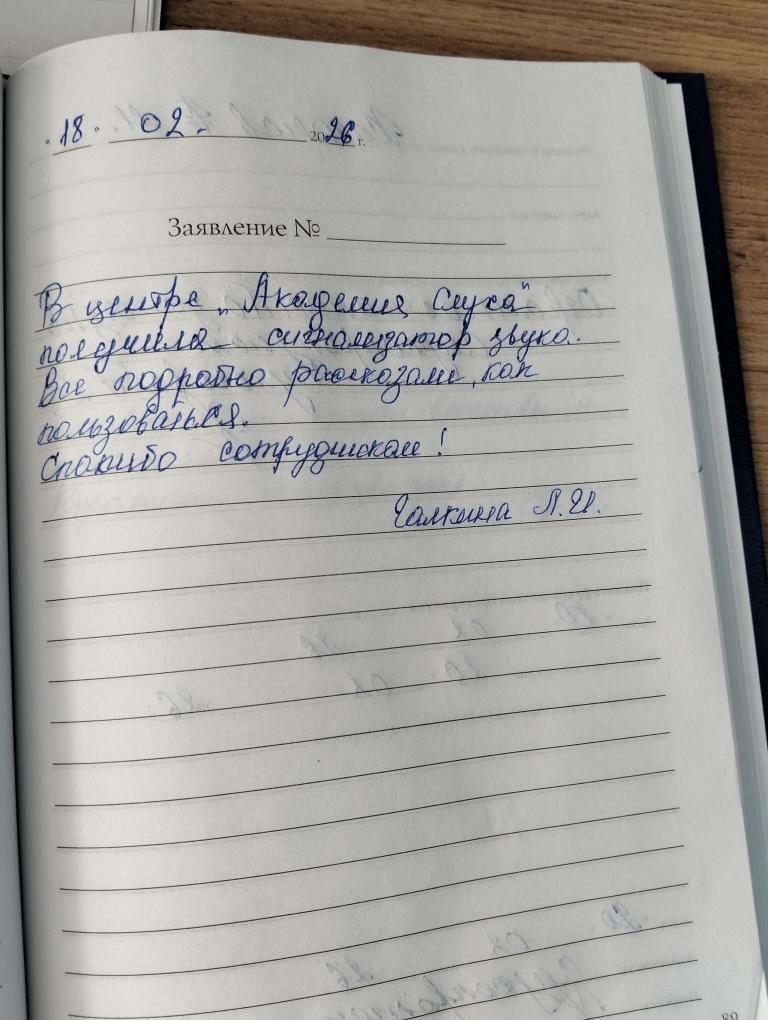 « 18 » 02. 2026 г.
Заявление №
В центре „Академия Слуха"
получила сигнализатор звука.
Все подробно рассказали, как
пользоваться.
Спасибо сотрудникам!
Галкина Л.И.
89